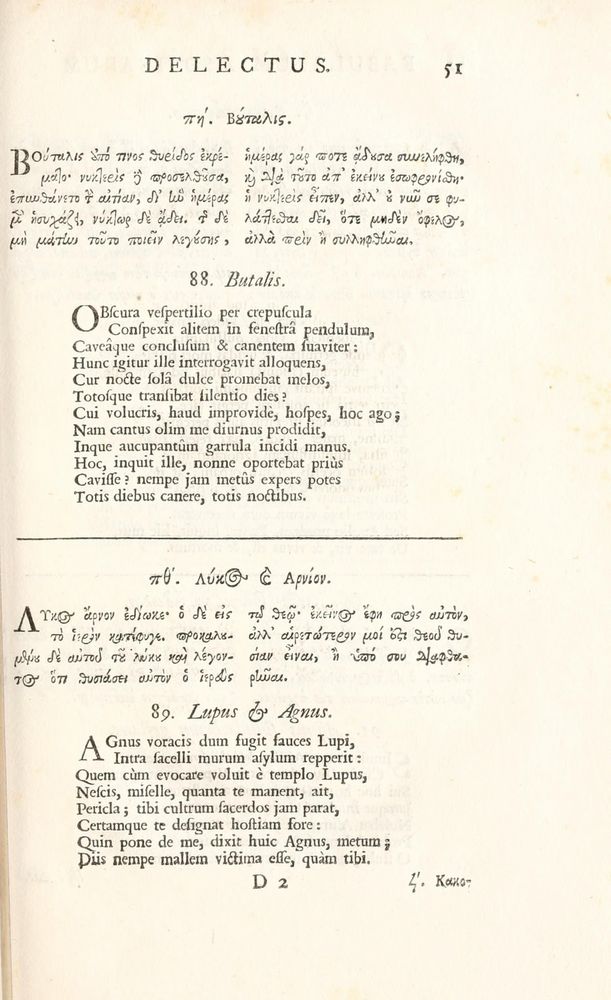 DELECTUS. 51
πή. Βούταλις.
Βούταλις ὑπό τινος θυρίδος ἐκρέ-
ματο· νυκτερὶς δὲ προσελθοῦσα,
ἐπυνθάνετο τὴν αἰτίαν, δι' ἣν ἡμέρας
μὲν ἡσυχάζει, νύκτωρ δὲ ᾄδει. τῆς δὲ
μὴ μάτην τοῦτο ποιεῖν λεγούσης,
ἡμέρας γάρ ποτε ᾄδουσα συνελήφθη,
καὶ διὰ τοῦτο ἀπ' ἐκείνου ἐσωφρονίσθη·
ἡ νυκτερὶς εἶπεν, ἀλλ' οὐ νῦν σε φυ-
λάττεσθαι δεῖ, ὅτε μηδὲν ὄφελος,
ἀλλὰ πρὶν ἢ συλληφθῆναι.
88. Butalis.
OBſcura veſpertilio per crepuſcula
Conſpexit alitem in feneſtrâ pendulum,
Caveâque concluſum & canentem ſuaviter:
Hunc igitur ille interrogavit alloquens,
Cur nocte ſolâ dulce promebat melos,
Totoſque tranſibat ſilentio dies?
Cui volucris, haud improvidè, hoſpes, hoc ago;
Nam cantus olim me diurnus prodidit,
Inque aucupantûm garrula incidi manus.
Hoc, inquit ille, nonne oportebat priùs
Caviſſe? nempe jam metûs expers potes
Totis diebus canere, totis noctibus.
πθ'. Λύκος & Αρνίον.
Λύκος ἄρνον ἐδίωκε· ὁ δὲ εἰς
τὸ ἱερὸν κατέφυγε. προκαλου-
μένου δὲ αὐτοῦ τοῦ λύκου καὶ λέγον-
τος ὅτι θυσιάσει αὐτὸν ὁ ἱερεὺς
τῷ θεῷ· ἐκεῖνος ἔφη πρὸς αὐτὸν,
ἀλλ' αἱρετώτερον μοί ἐστι θεοῦ θυ-
σίαν εἶναι, ἢ ὑπό σου διαφθα-
ρῆναι.
89. Lupus & Agnus.
AGnus voracis dum fugit fauces Lupi,
Intra ſacelli murum aſylum repperit:
Quem cùm evocare voluit è templo Lupus,
Neſcis, miſelle, quanta te manent, ait,
Pericla; tibi cultrum ſacerdos jam parat,
Certamque te deſignat hoſtiam fore:
Quin pone de me, dixit huic Agnus, metum;
Diis nempe mallem victima eſſe, quàm tibi.
D 2 ϟ'. Κακο-